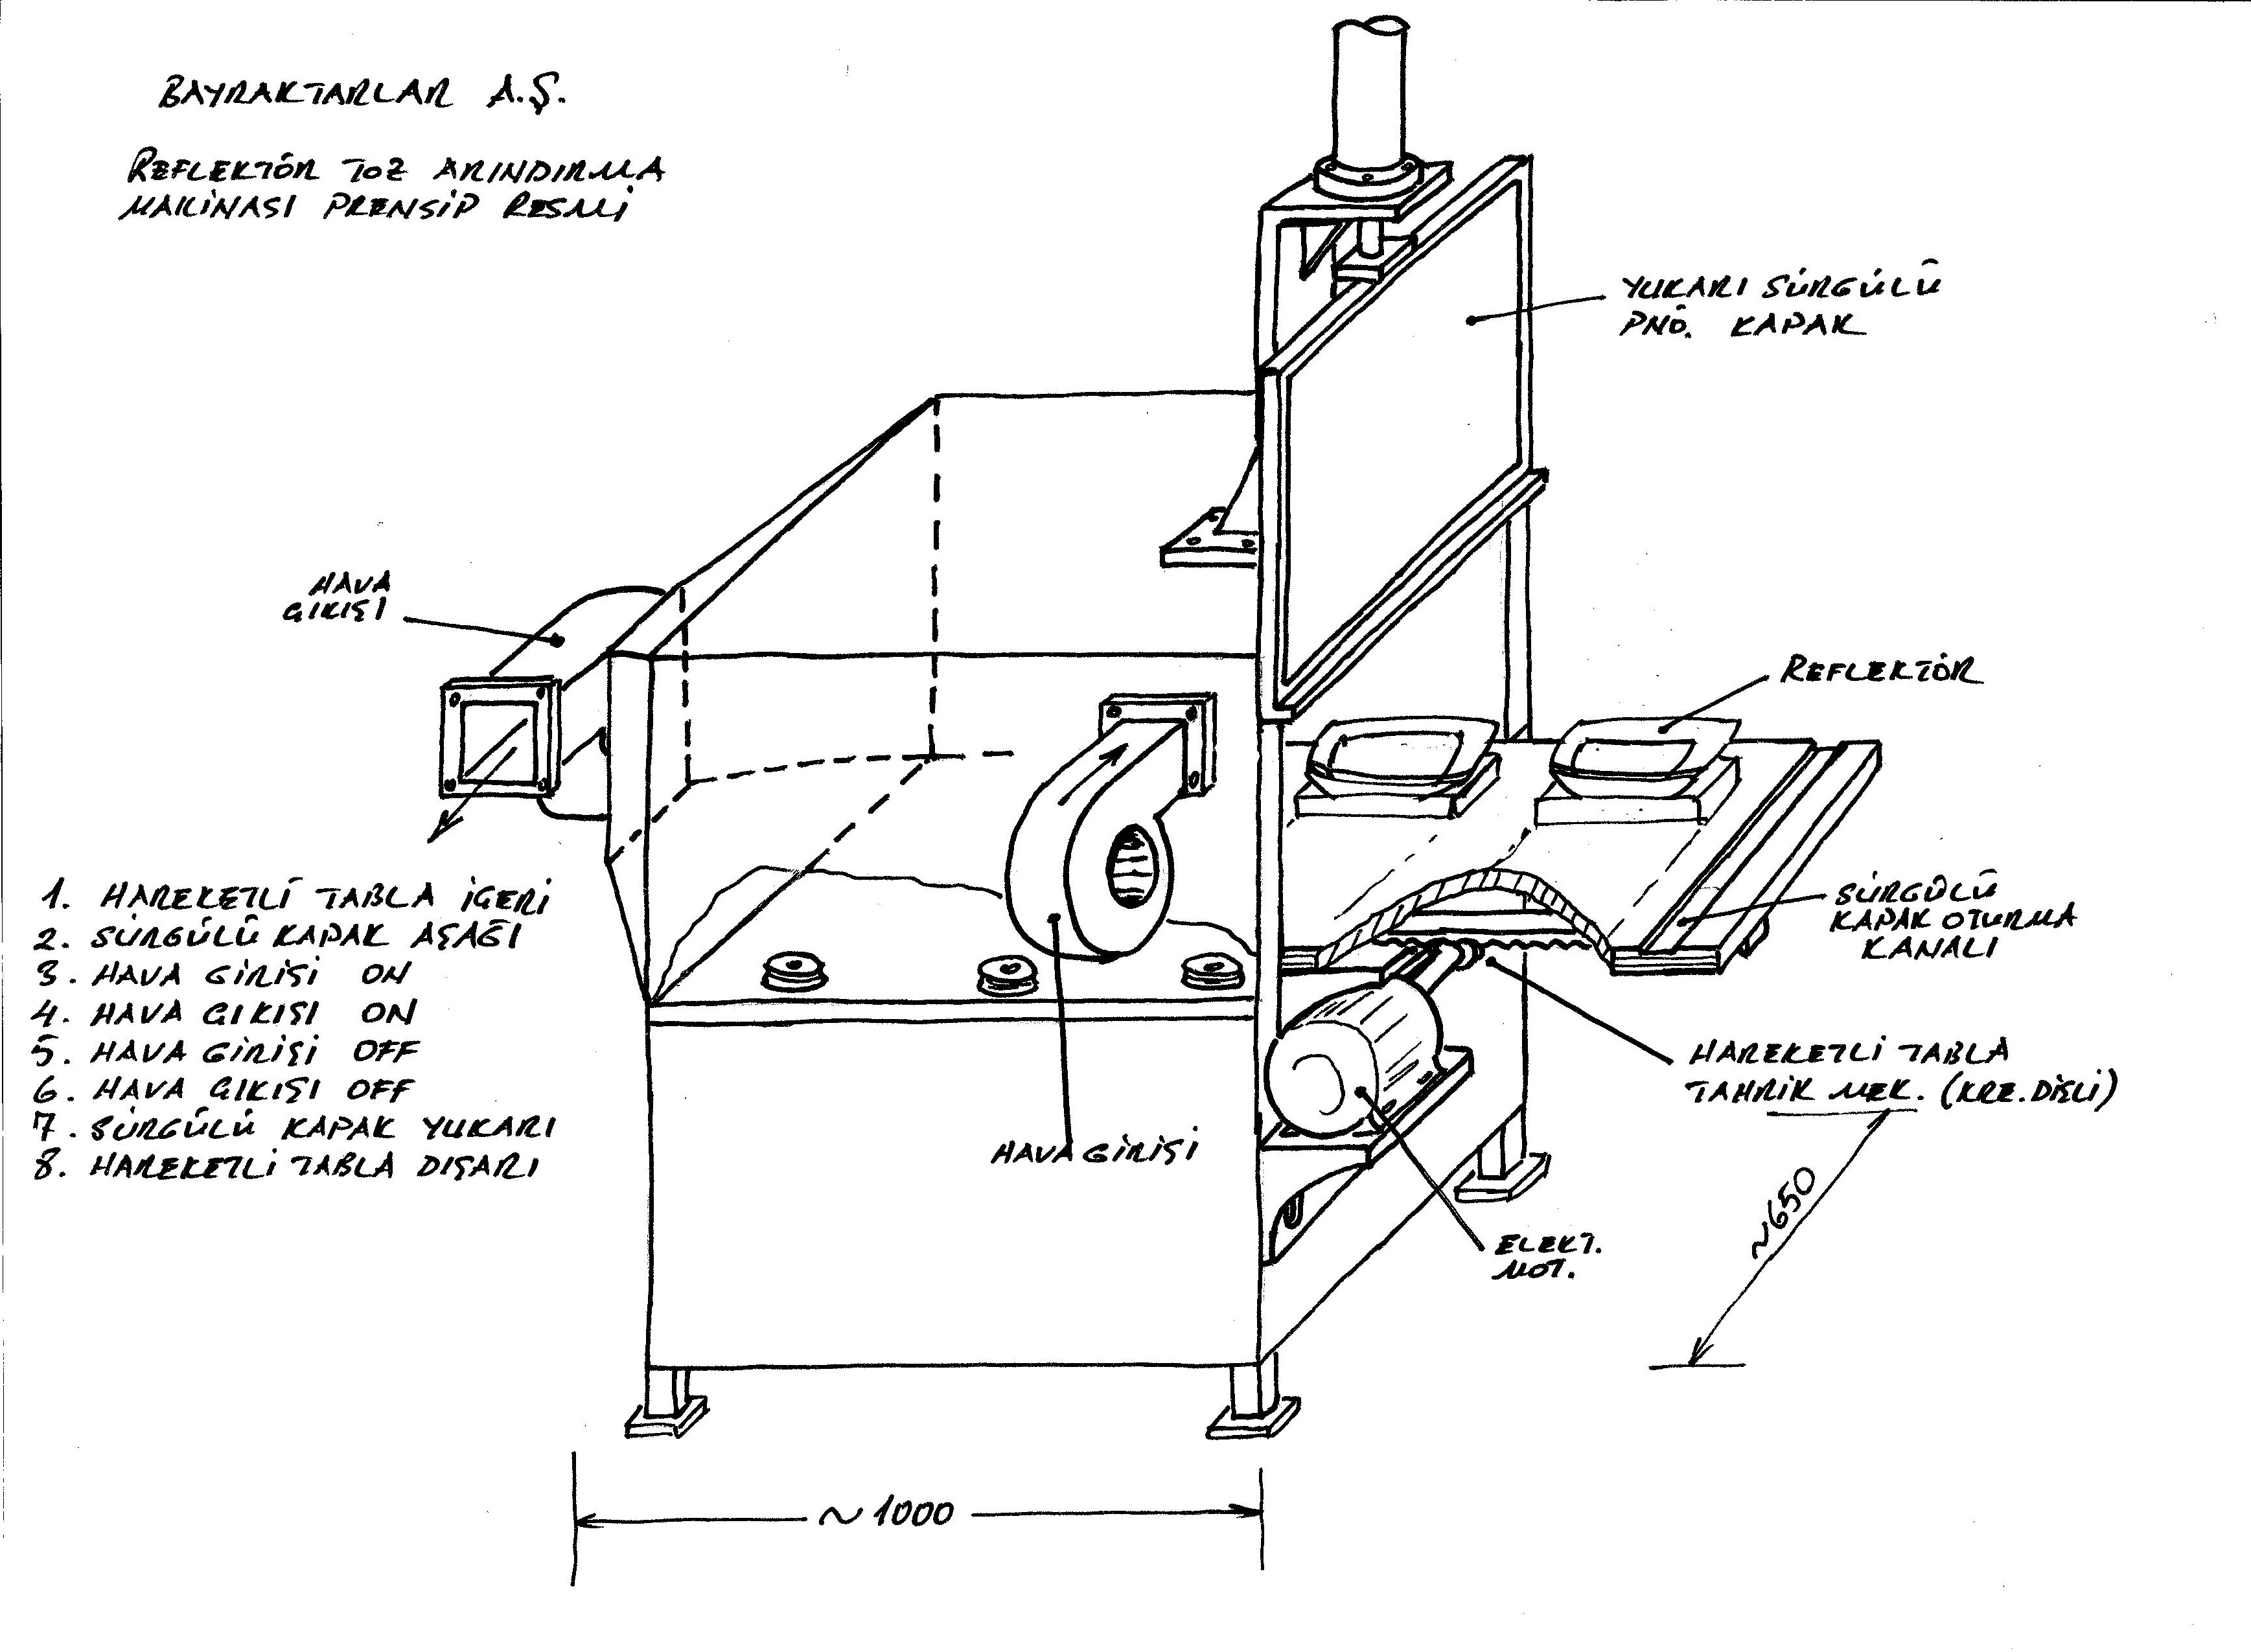 BAYRAKTARLAR A.Ş.
REFLEKTÖR TOZ ARINDIRMA
MAKİNASI PRENSİP RESMİ
YUKARI SÜRGÜLÜ
PNÖ. KAPAK
HAVA
ÇIKIŞI
REFLEKTÖR
1. HAREKETLİ TABLA İÇERİ
2. SÜRGÜLÜ KAPAK AŞAĞI
3. HAVA GİRİŞİ ON
4. HAVA ÇIKIŞI ON
5. HAVA GİRİŞİ OFF
6. HAVA ÇIKIŞI OFF
7. SÜRGÜLÜ KAPAK YUKARI
8. HAREKETLİ TABLA DIŞARI
SÜRGÜLÜ
KAPAK OTURMA
KANALI
HAREKETLİ TABLA
TAHRİK MEK. (KRE.DİŞLİ)
HAVA GİRİŞİ
ELEKT.
MOT.
~650
~1000